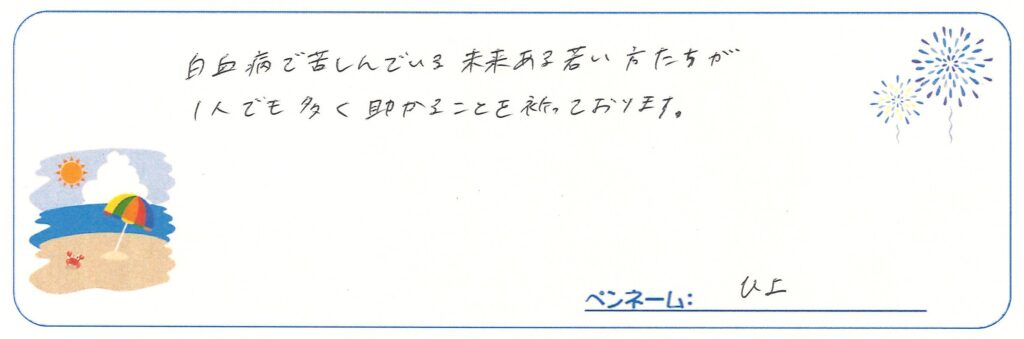 白血病で苦しんでいる未来ある若い方たちが
1人でも多く助かることを祈っております。
ペンネーム: ひよ